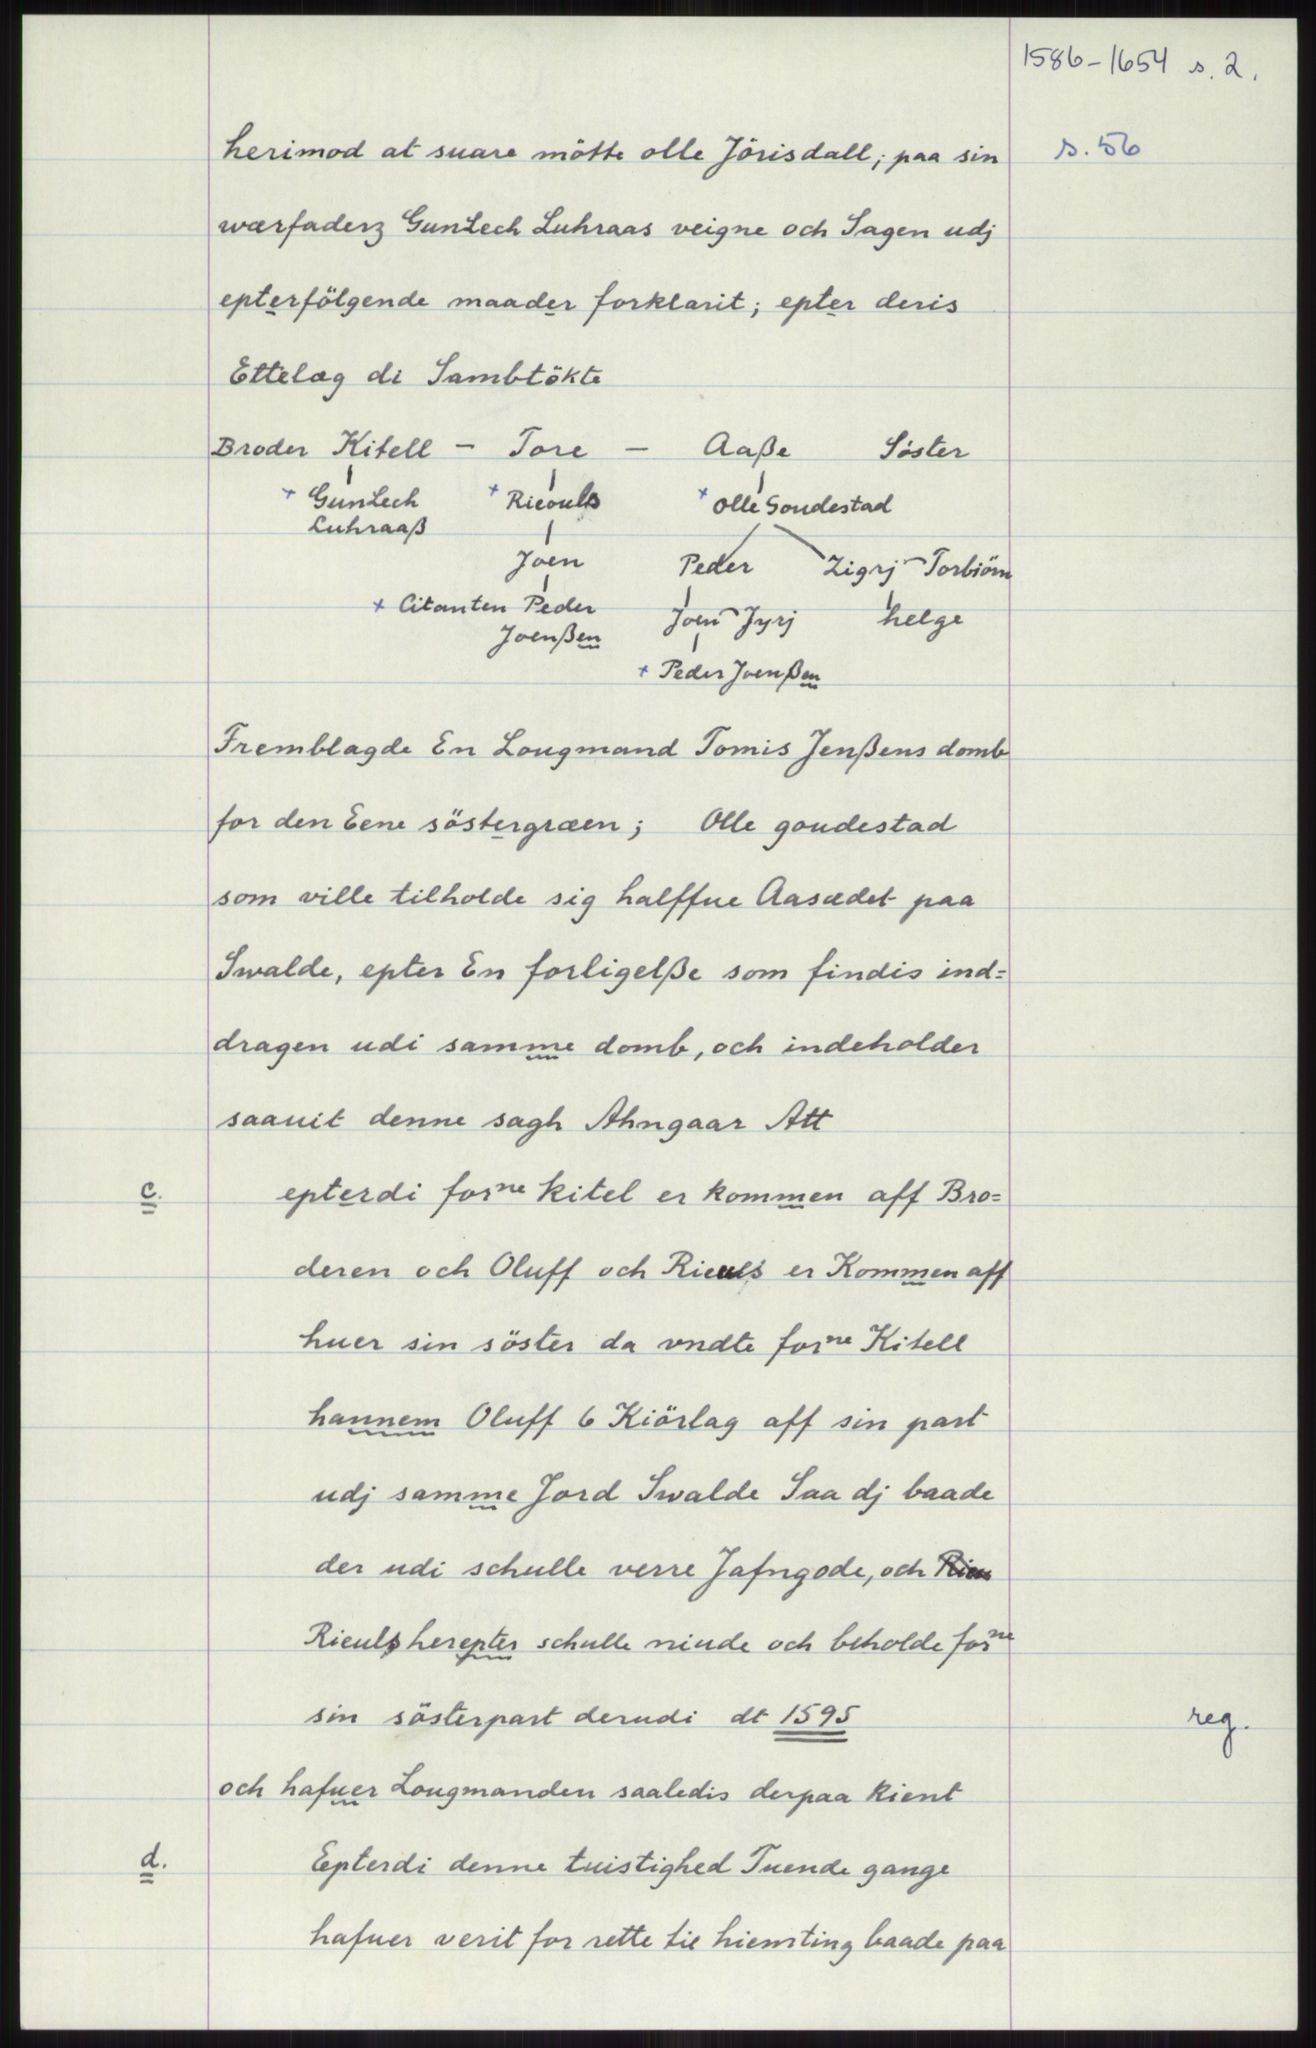 1586-1654 s. 2.
herimod at suare mötte olle Jörisdall; paa sin
s. 56
wærfaderz Gunlech Luhraas veigne och Sagen udj
epterfölgende maader forklarit; epter deris
Ettelæg di Sambtökte
Broder Kitell - Tore - Aaße Söster
+ Gunlech + Rieouls + olle Goudestad
Luhraaß
Joen Peder Zigrj Torbiörn
+ Citanten Peder Joen Jyrj helge
Joenßen
+ Peder Joenßen
Fremblagde En Lougmand Tomis Jenßens domb
for den Eene söstergræen; Olle goudestad
som ville tilholde sig halffue Aasædet paa
Swalde, epter En forligelße som findis ind=
dragen udi samme domb, och indeholder
saauit denne sagh Ahngaar Att
c. epterdi forne kitel er kommen aff Bro=
deren och Oluff och Rieuls er Kommen aff
huer sin söster da vndte forne Kitell
hannem Oluff 6 Kiörlag aff sin part
udj samme Jord Swalde Saa dj baade
der udi schulle verre Jafngode, och Rieu
Rieuls herepter schulle niude och beholde forne
sin sösterpart derudi dt 1595
reg.
och hafuer Lougmanden saaledis derpaa kient
d. Epterdi denne tuistighed Tuende gange
hafuer verit for rette til hiemting baade paa